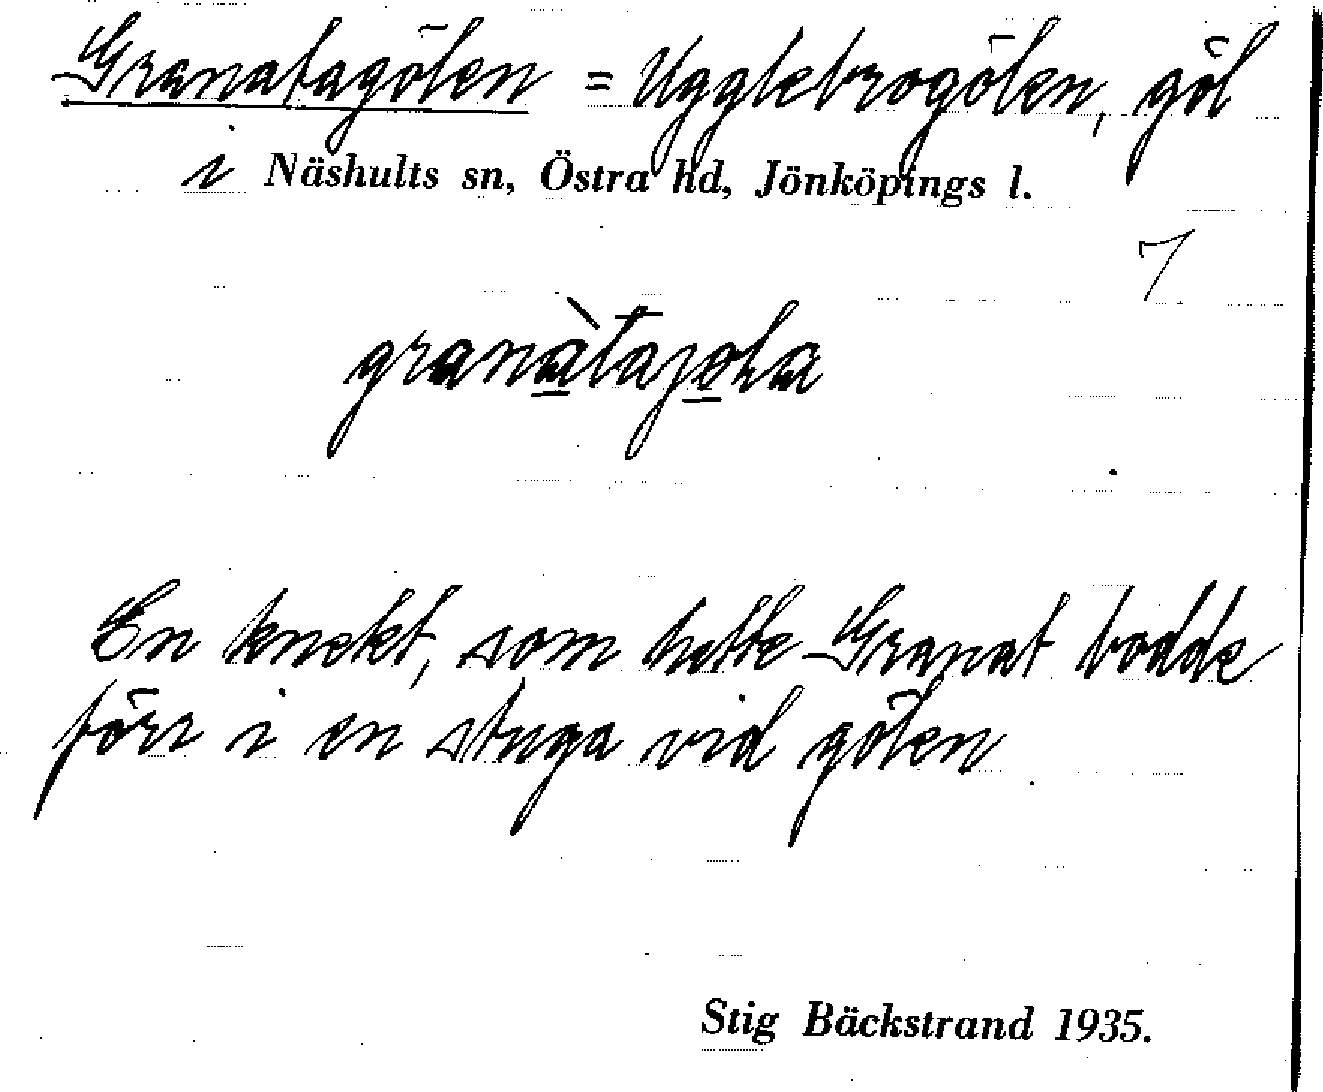 Granatagölen = Ugglebrogölen, göl
i Näshults sn, Östra hd, Jönköpings l.
7
En knekt, som hette Granat bodde
förr i en stuga vid gölen
Stig Bäckstrand 1935.